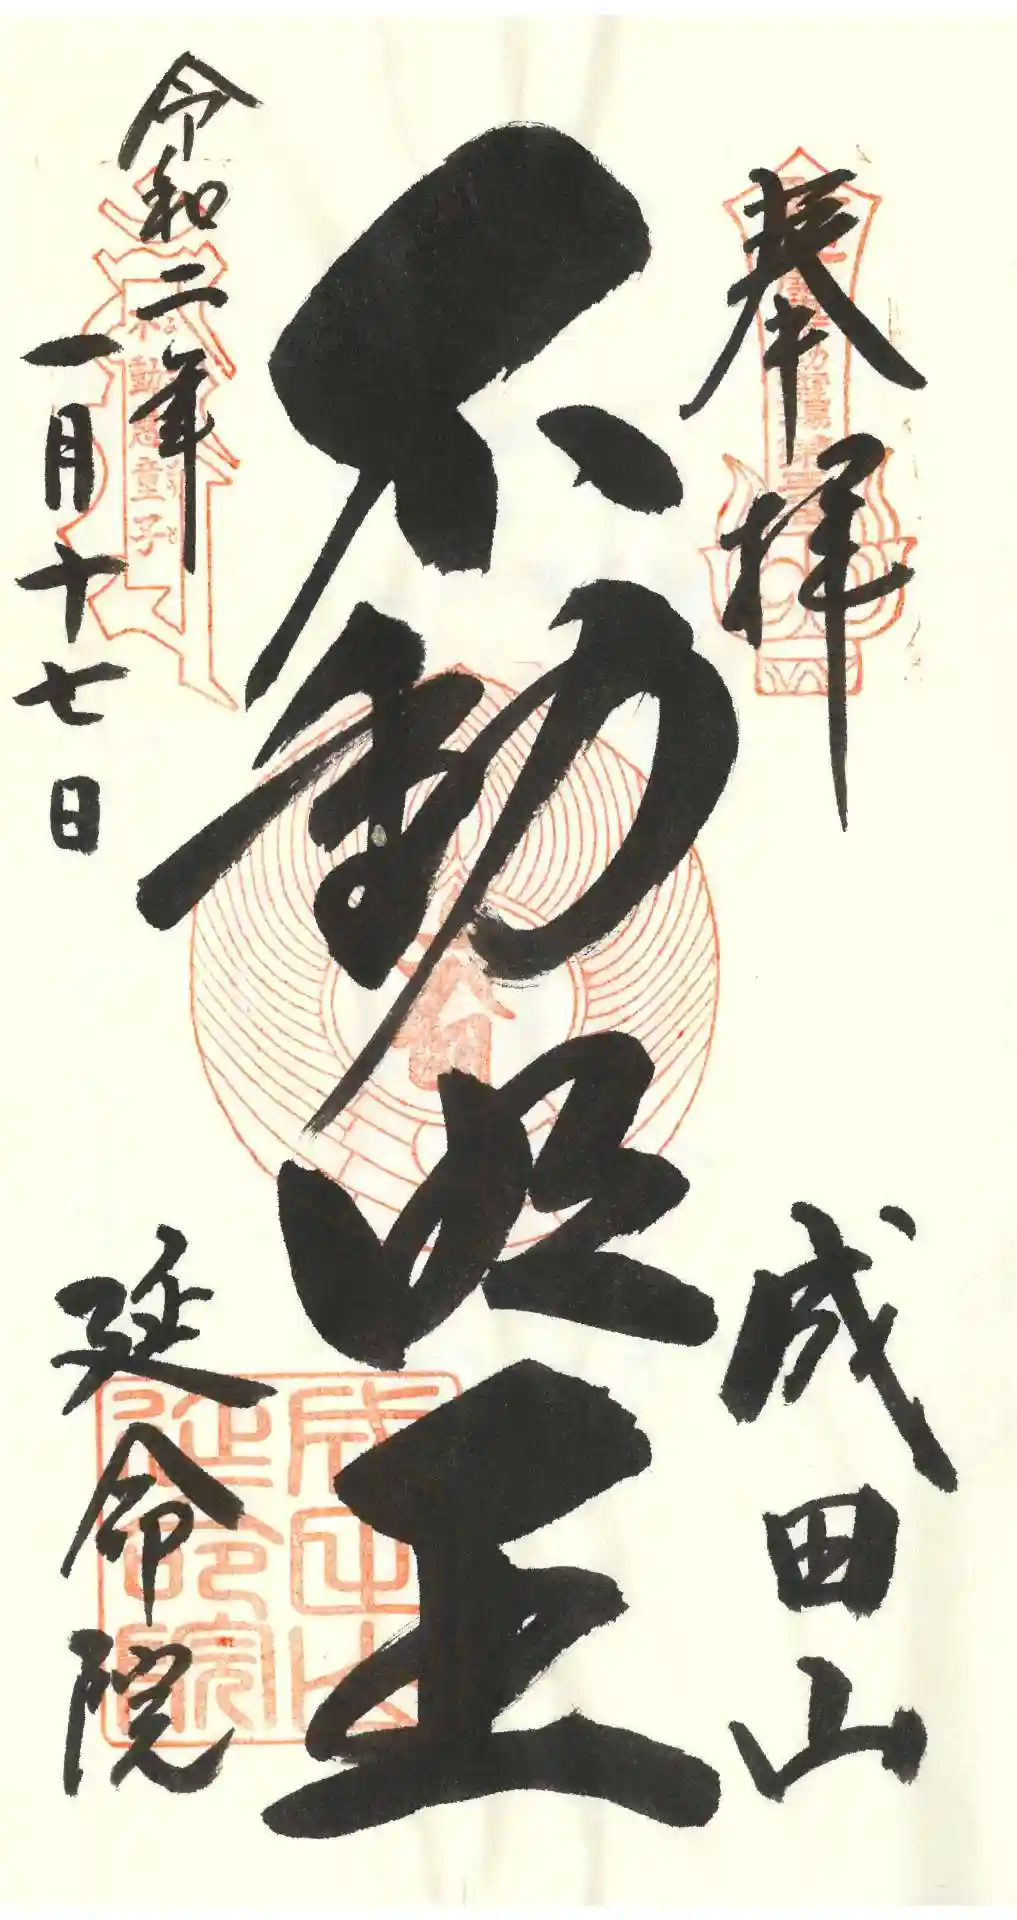 奉拝
成田山
不動明王
令和二年
一月十七日
延命院
成田山
延命院
童子